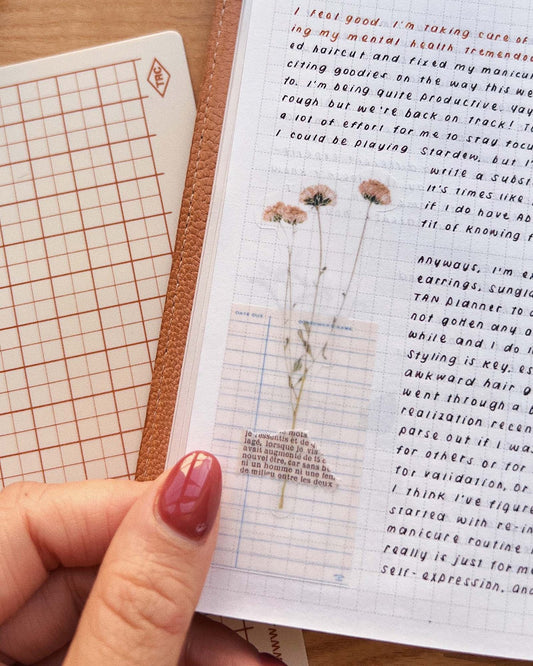 TRC
I feel good. I'm taking care of
ing my mental health tremendou
ed haircut and fixed my manicur
citing goodies on the way this we
to. I'm being quite productive. Yay
rough but we're back on track! T
a lot of effort for me to stay focu
I could be playing Stardew. but I'
write a subst
It's times like
if I do have AD
fit of knowing f
Anyways, I'm e
earrings, sungla
TAN planner to
not gotten any o
while and I do
styling is key, es
awkward hair g
went through a
realization recen
parse out if I wa
for others or for
for validation, or
I think I've figur
started with re-in
manicure routine
really is just for me
self-expression, and
DATE DUE
BORROWER'S NAME
mots
je ressentis et de
lagé, lorsque je vis
avait augmenté de
nouvel être, car sans
ni un homme ni une fem,
de milieu entre les deux
TRC